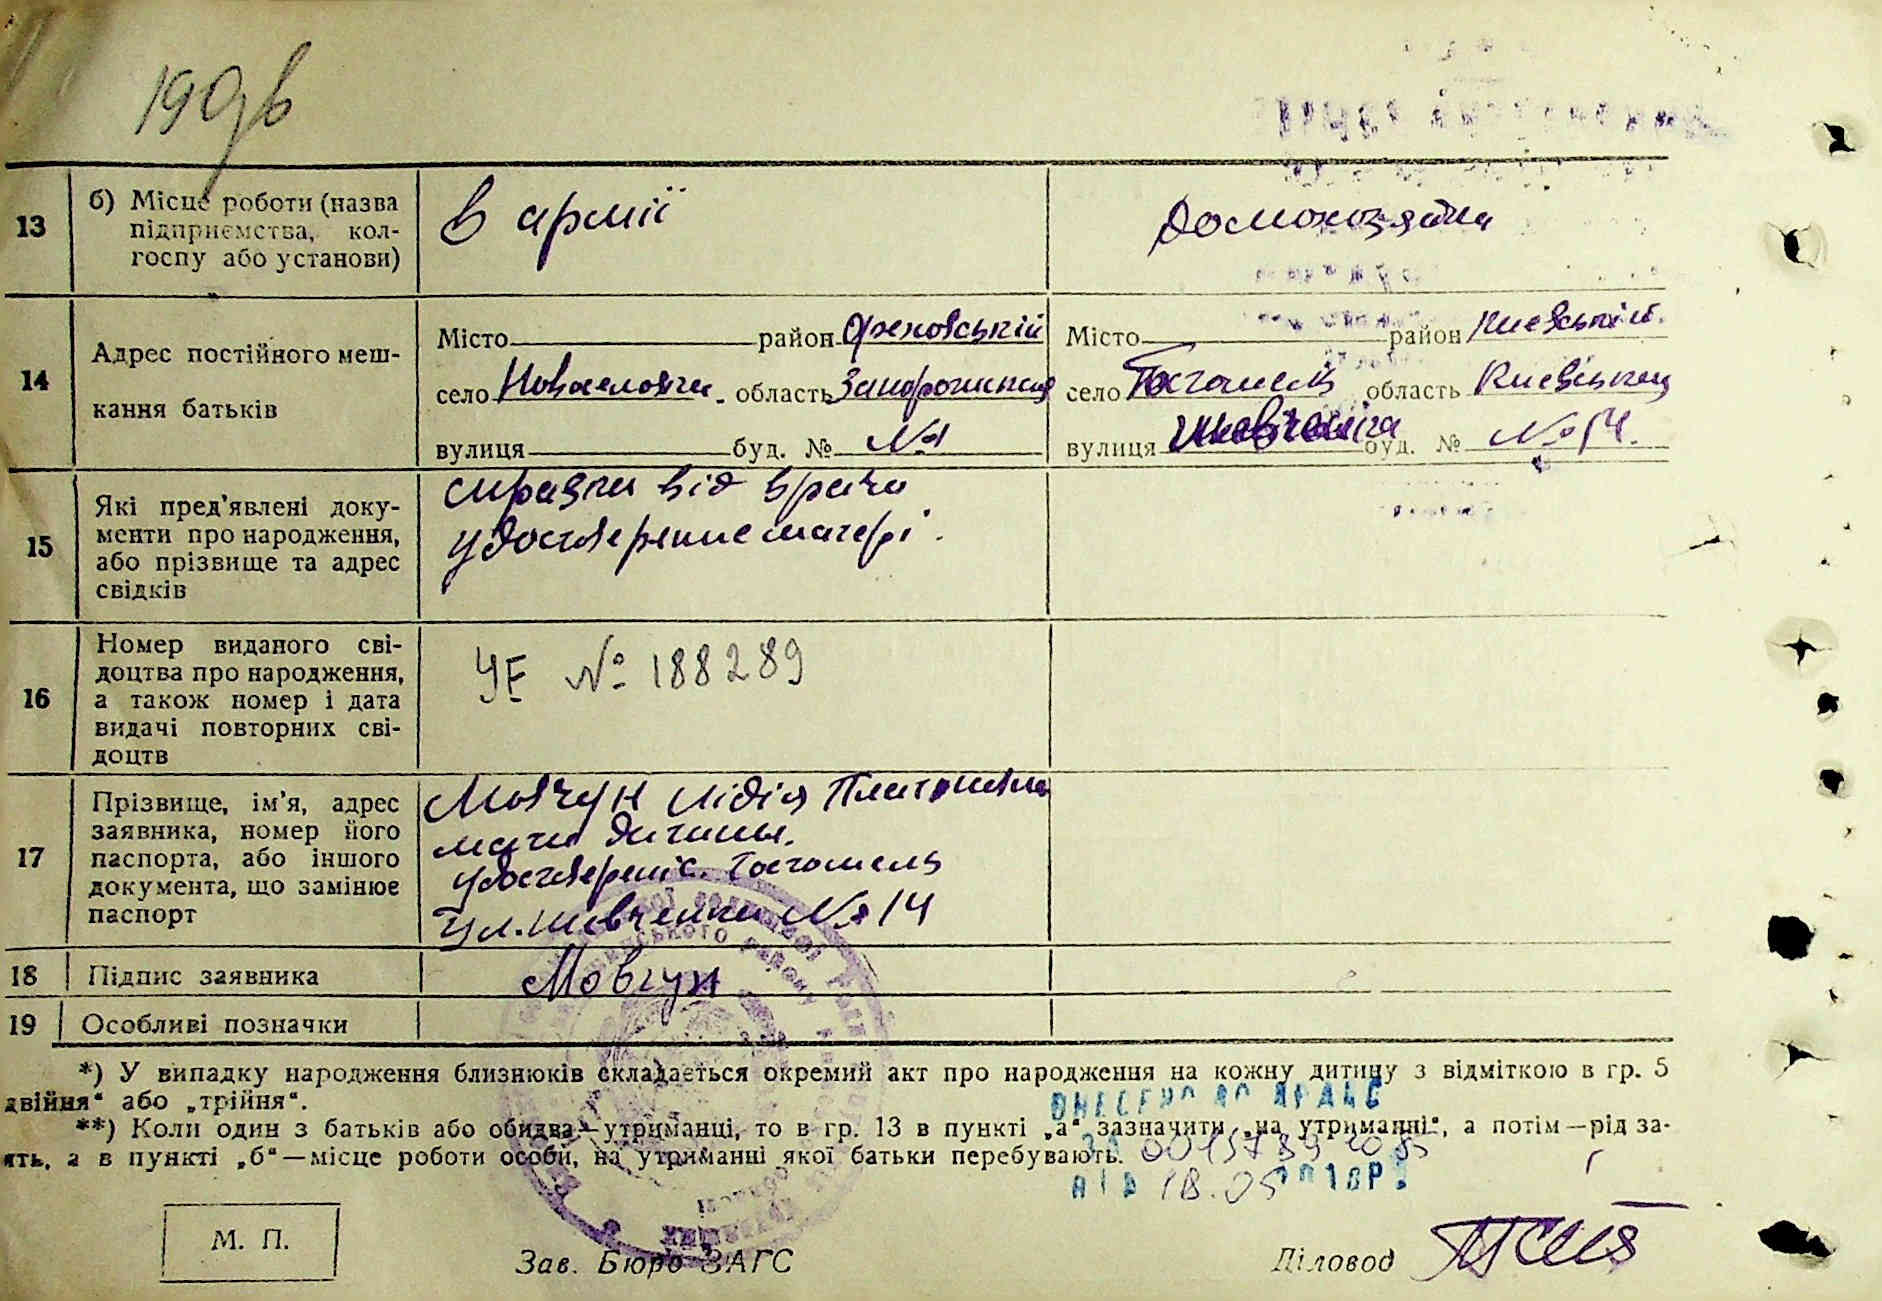 190в
13 б) Місце роботи (назва підприємства, кол-госпу або установи) в армії домохозяйка
14 Адрес постійного меш-кання батьків
Місто район Оріховський Місто район Киевський
село область Запорожська село Гостомель область Киевська
вулиця буд. № №1 вулиця Шевченка буд. № №14.
15 Які пред'явлені доку-
менти про народження,
або прізвище та адрес
свідків
справки від врача
удостверение матері.
16 Номер виданого сві-
доцтва про народження,
а також номер і дата
видачі повторних сві-
доцтв
УЕ № 188289
17 Прізвище, ім'я, адрес
заявника, номер його
паспорта, або іншого
документа, що замінює
паспорт
Мовчун Лідія
мати дитини.
Гостомель
ул. Шевченки №14
18 Підпис заявника Мовчун
19 Особливі позначки
*) У випадку народження близнюків складається окремий акт про народження на кожну дитину з відміткою в гр. 5
двійня“ або „трійня“.
**) Коли один з батьків або обидва—утриманці, то в гр. 13 в пункті „а“ зазначити „на утриманні“, а потім—рід за-
ять, а в пункті „б“—місце роботи особи, на утриманні якої батьки перебувають.
ВНЕСЕНО ДО ДРАЦС
ВІД 18.05 2018Р.
М. П.
Зав. Бюро ЗАГС
Діловод